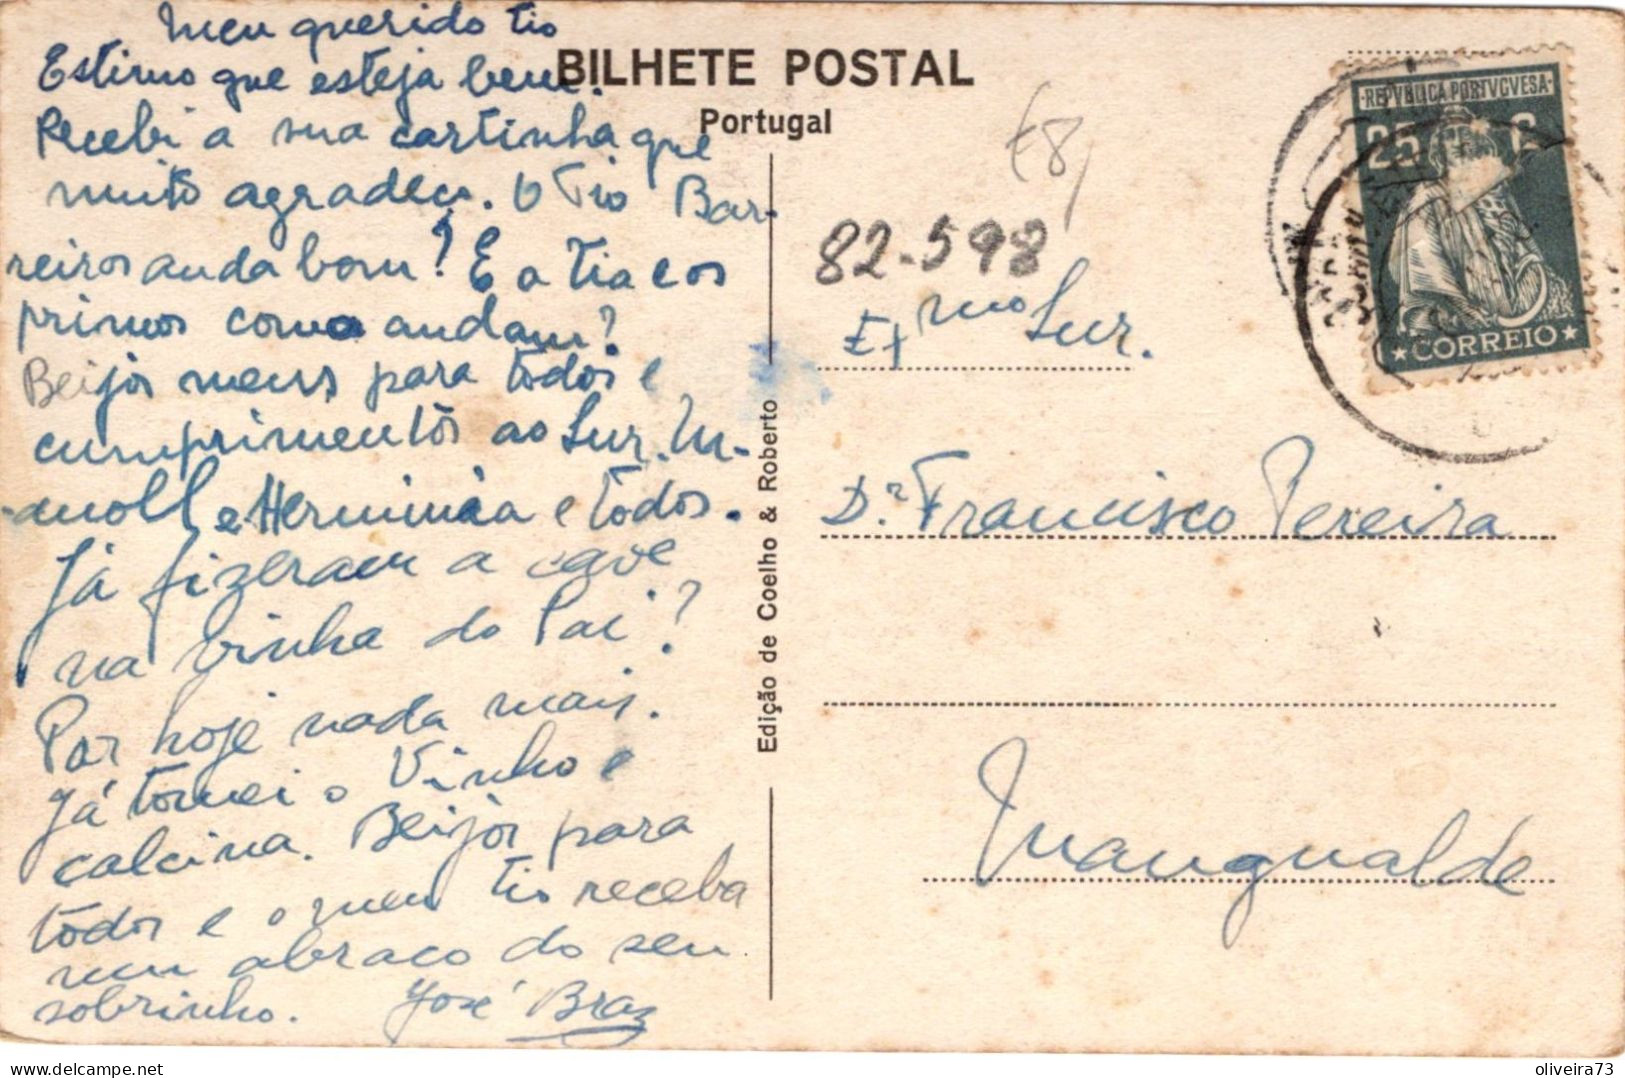 Meu querido tio
Estimo que esteja bem.
Recebi a sua cartinha que
muito agradeço. O Tio Bar-
reiros anda bom? E a tia e os
primos como andam?
Beijos meus para todos e
cumprimentos ao Snr. M-
anoel e Herminia e todos.
Já fizeram a cave
na vinha do Pai?
Por hoje nada mais.
Já tomei o Vinho e
calcina. Beijos para
todos e o meu tio receba
um abraco do seu
sobrinho. José Braz
BILHETE POSTAL
Portugal
Edição de Coelho & Roberto
£8,
82-598
REPVBLICA PORTVGVESA
25 C.
CORREIO
Exmo Snr.
Dr. Francisco Pereira
Mangualde
oliveira73